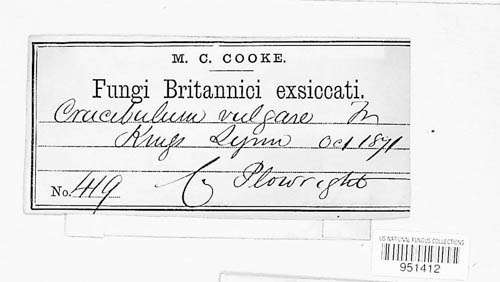 M. C. COOKE.
Fungi Britannici exsiccati.
Crucibulum vulgare Tn
Kings Lynn Oct 1871
No. 419 C. Plowright
US NATIONAL FUNGUS COLLECTIONS
951412